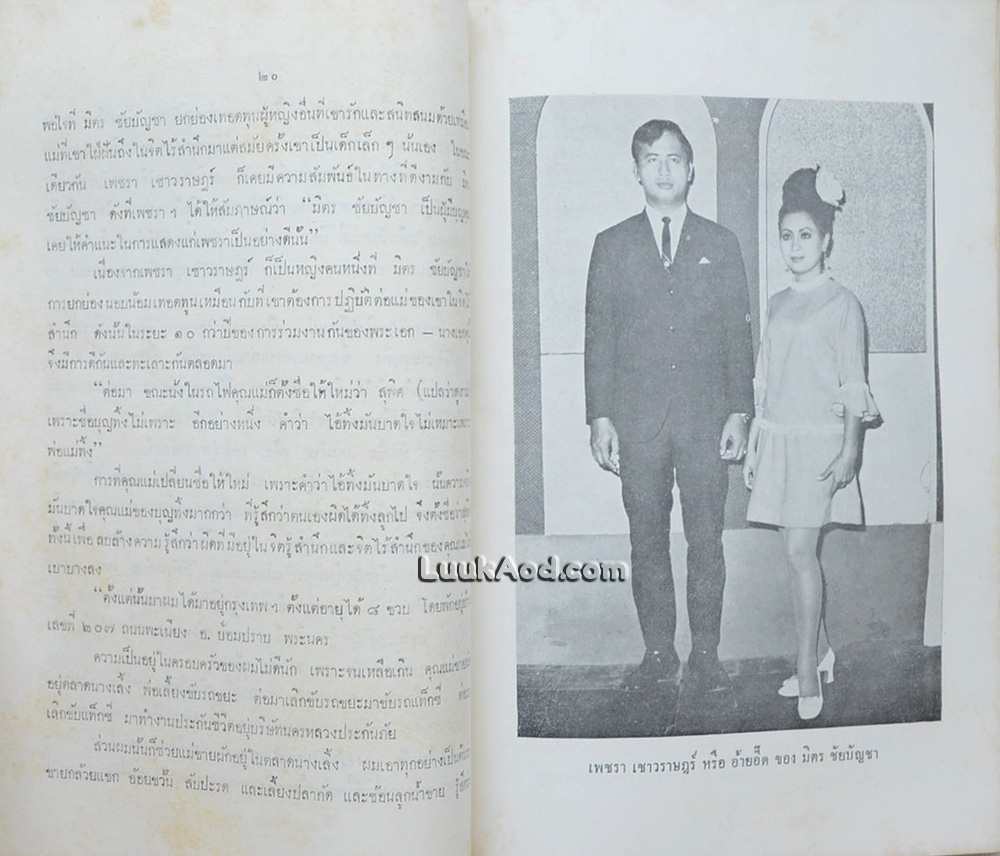 ๒๐
พอใจที่ มิตร ชัยบัญชา ยกย่องเทอดทูนผู้หญิงอื่นที่เขารักและสนิทสนมด้วยเหมือน
แม่ที่เขาใฝ่ฝันถึงในจิตไร้สำนึกมาแต่สมัยครั้งเขาเป็นเด็กเล็ก ๆ นั่นเอง
เดียวกัน เพชรา เชาวราษฎร์ ก็เคยมีความสัมพันธ์ในทางที่ดีงามกับ มิตร
ชัยบัญชา ดังที่เพชรา ฯ ได้ให้สัมภาษณ์ว่า “มิตร ชัยบัญชา เป็นผู้มีบุญคุณ
เคยให้คำแนะในการแสดงแก่เพชราเป็นอย่างดีนั้น”
เนื่องจากเพชรา เชาวราษฎร์ ก็เป็นหญิงคนหนึ่งที่ มิตร ชัยบัญชา
การยกย่องนอบน้อมเทอดทูนเหมือนกับที่เขาต้องการปฏิบัติต่อแม่ของเขาในจิตไร้
สำนึก ดังนั้นในระยะ ๑๐ กว่าปีของการร่วมงานกันของพระเอก – นางเอก
จึงมีการดีกันและทะเลาะกันตลอดมา
“ต่อมา ขณะนั่งในรถไฟคุณแม่ก็ตั้งชื่อให้ใหม่ว่า สุพิศ (แปลว่าดูงาม
เพราะชื่อบุญทิ้งไม่เพราะ อีกอย่างหนึ่ง คำว่า ไอ้ทิ้งมันบาดใจไม่เหมาะ
พ่อแม่ทิ้ง”
การที่คุณแม่เปลี่ยนชื่อให้ใหม่ เพราะคำว่าไอ้ทิ้งมันบาดใจ นั้นความ
มันบาดใจคุณแม่ของบุญทิ้งมากกว่า ที่รู้สึกว่าตนเองผิดได้ทิ้งลูกไป จึงตั้งชื่อ
ทั้งนี้เพื่อลบล้างความรู้สึกว่าผิดที่มีอยู่ในจิตรู้สำนึกและจิตไร้สำนึกของคุณแม่
เบาบางลง
“ตั้งแต่นั้นมาผมได้มาอยู่กรุงเทพ ฯ ตั้งแต่อายุได้ ๘ ขวบ โดยพักอยู่
เลขที่ ๒๐๗ ถนนพะเนียง อ. ป้อมปราบ พระนคร
ความเป็นอยู่ในครอบครัวของผมไม่ดีนัก เพราะจนเหลือเกิน คุณแม่ขาย
อยู่ตลาดนางเลิ้ง พ่อเลี้ยงขับรถขยะ ต่อมาเลิกขับรถขยะมาขับรถแท็กซี่
เลิกขับแท็กซี่ มาทำงานประกันชีวิตอยู่บริษัทนครหลวงประกันภัย
ส่วนผมนั้นก็ช่วยแม่ขายผักอยู่ในตลาดนางเลิ้ง ผมเอาทุกอย่างเป็นต้น
ขายกล้วยแขก อ้อยขวั้น สับปะรด และเลี้ยงปลากัด และช้อนลูกน้ำขาย
LuukAod.com
เพชรา เชาวราษฎร์ หรือ อ้ายอี๊ด ของ มิตร ชัยบัญชา